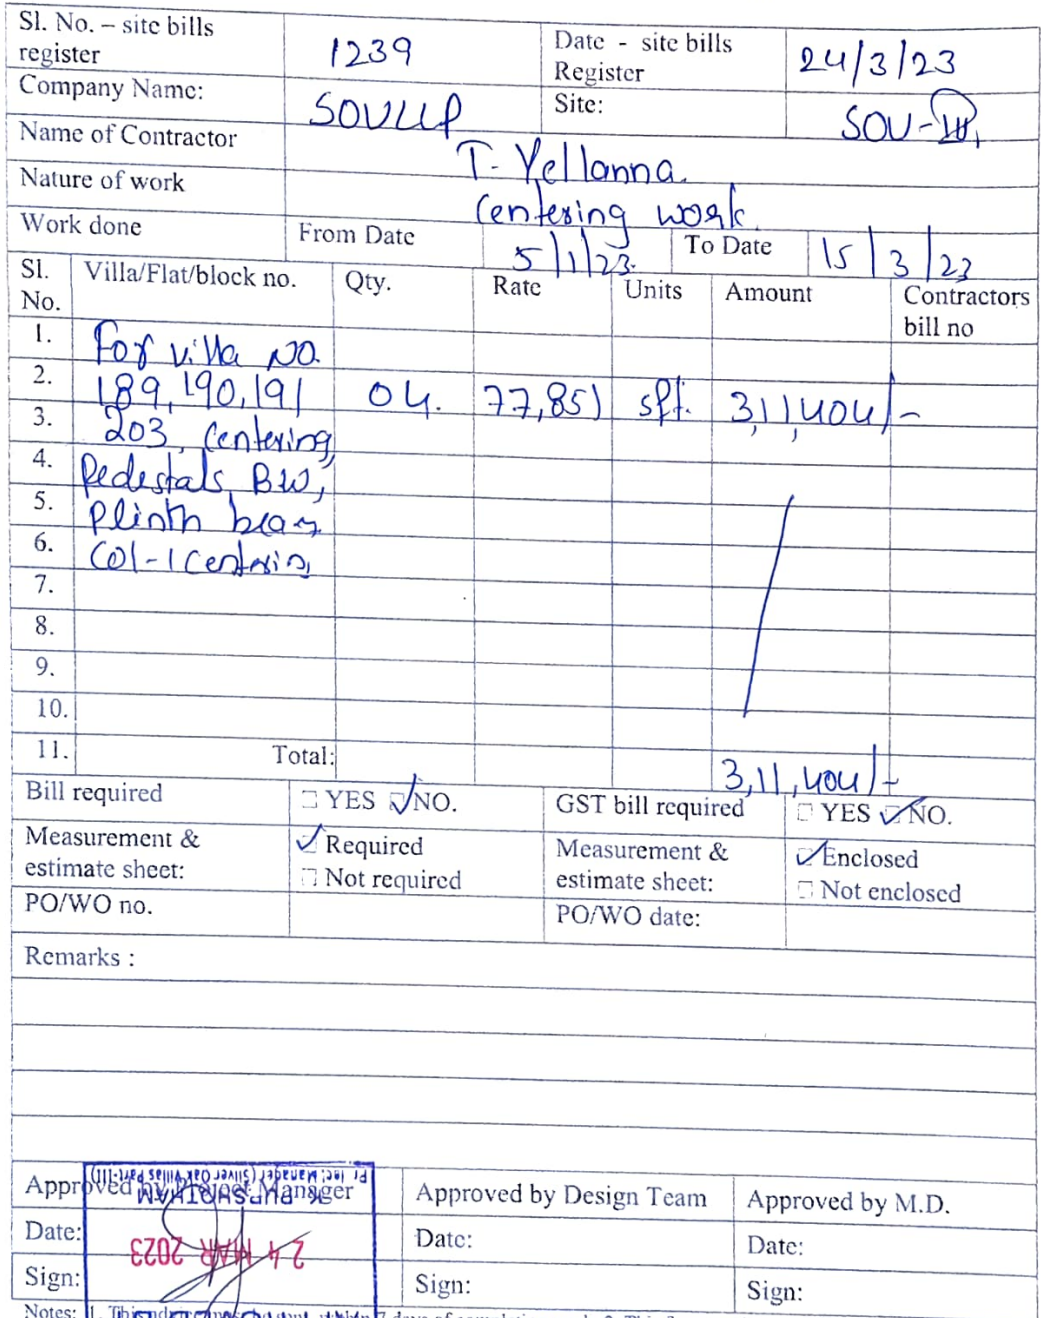 Sl. No. – site bills register 1239 Date - site bills Register 24/3/23
Company Name: SOVLLP Site: SOV-III,
Name of Contractor T. Yellanna.
Nature of work Centering work.
Work done From Date 5/1/23. To Date 15/3/23
Sl. No. Villa/Flat/block no. Qty. Rate Units Amount Contractors bill no
1. For villa NO.
2. 189, 190, 191 04. 77,851 sft. 3,11,404/-
3. 203, Centering,
4. Pedestals, BW,
5. Plinth beam
6. Col-1 Centering
7.
8.
9.
10.
11. Total: 3,11,404/-
Bill required YES NO. GST bill required YES NO.
Measurement & estimate sheet: Required Not required Measurement & estimate sheet: Enclosed Not enclosed
PO/WO no. PO/WO date:
Remarks :
Approved by Project Manager Approved by Design Team Approved by M.D.
Date: Date: Date:
Sign: Sign: Sign:
24 MAR 2023
K. PURSHOTHAM
Manager (Silver Oak Villas Part-III)
Notes: 1.